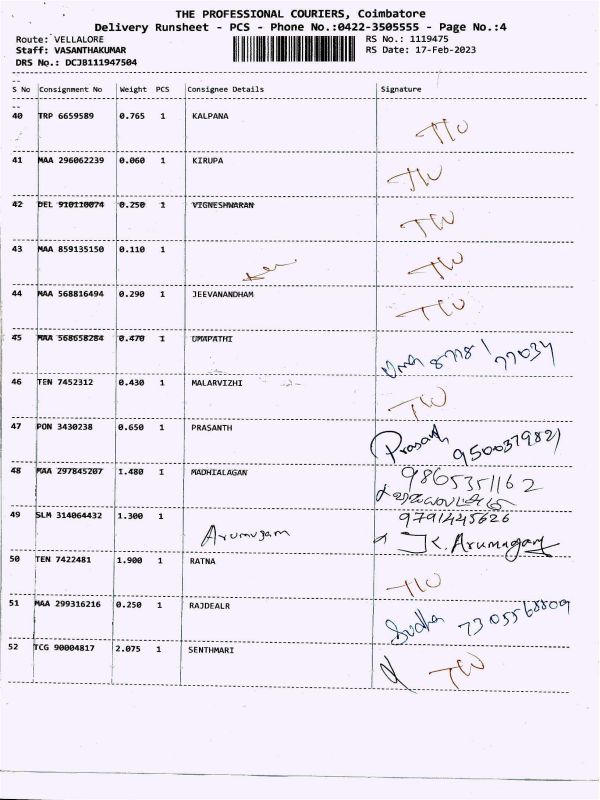 THE PROFESSIONAL COURIERS, Coimbatore
Delivery Runsheet - PCS - Phone No.:0422-3505555 - Page No.:4
Route: VELLALORE RS No.: 1119475
Staff: VASANTHAKUMAR RS Date: 17-Feb-2023
DRS No.: DCJB111947504
S No Consignment No Weight PCS Consignee Details Signature
40 TRP 6659589 0.765 1 KALPANA
41 MAA 296062239 0.060 1 KIRUPA
42 DEL 910110074 0.250 1 VIGNESHWARAN
43 MAA 859135150 0.110 1
44 MAA 568816494 0.290 1 JEEVANANDHAM
45 MAA 568658284 0.470 1 UMAPATHI
46 TEN 7452312 0.430 1 MALARVIZHI
47 PON 3430238 0.650 1 PRASANTH Prasanth 9500379821
48 MAA 297845207 1.480 1 MADHIALAGAN 9865351162
49 SLM 314064432 1.300 1 Arumugam 9791445626
K. Arumugam
50 TEN 7422481 1.900 1 RATNA
51 MAA 299316216 0.250 1 RAJDEALR Sudha 7305568809
52 TCG 90004817 2.075 1 SENTHMARI